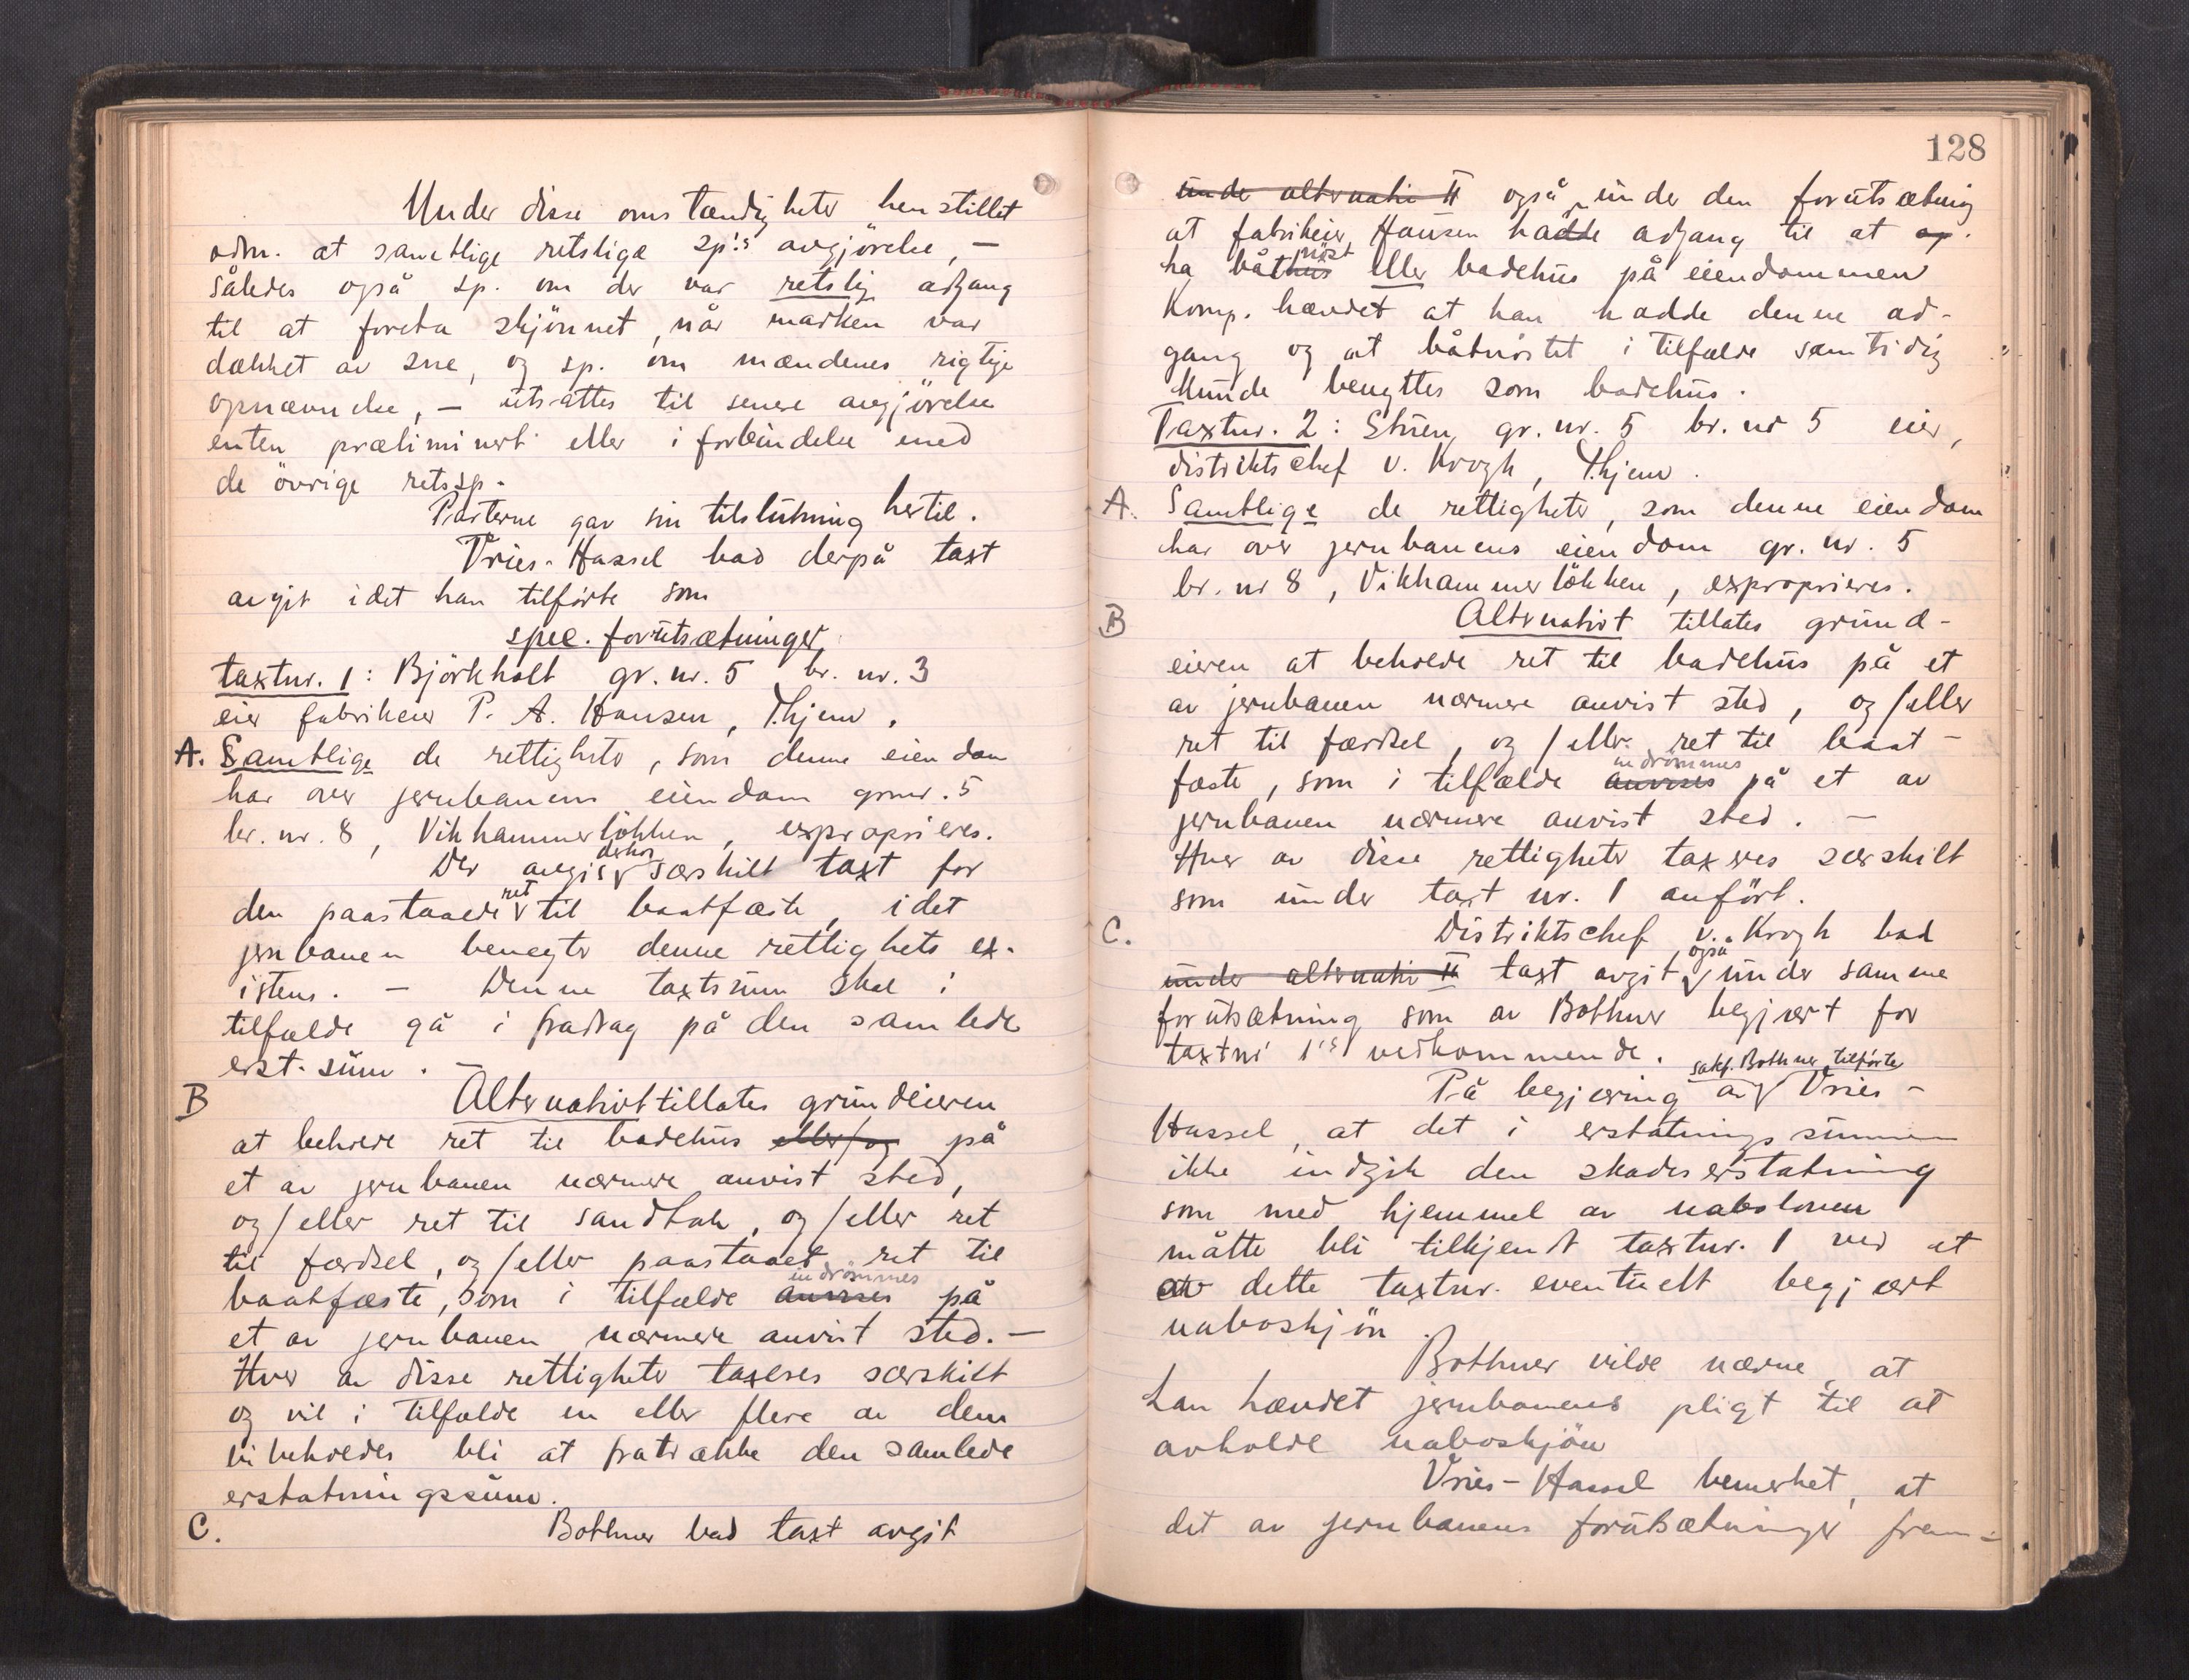 Under disse omstændigheter henstillet
adm. at samtlige retslige sp!s avgjörelse, —
således også sp. om der var retslig adgang
til at foreta skjönnet, når marken var
dækket av sne, og sp. om mændenes rigtige
opnævnelse, — utsattes til senere avgjörelse
enten præliminert eller i forbindelse med
de övrige retssp.
Parterne gav sin tilslutning hertil.
Vries-Hassel bad derpå taxt
avgit idet han tilförte som
spec. forutsætninger
taxtnr. 1: Björkholt gr. nr. 5 br. nr. 3
eier fabrikeier P. A. Hansen, T.hjem.
A. Samtlige de rettigheter, som denne eiendom
har over jernbanens eiendom grnr. 5
br. nr. 8, Vikhammerlökken, exproprieres.
Der avgis derhos særskilt taxt for
den paastaaede ret til baatfæste, idet
jernbanen benegter denne rettighets ex-
istens. — Denne taxtsum skal i
tilfælde gå i fradrag på den samlede
erst. sum. —
B Alternativt tillates grundeieren
at beholde ret til badehus eller/og på
et av jernbanen nærmere anvist sted,
og/eller ret til sandtak, og/eller ret
til færdsel, og/eller paastaaet ret til
baatfæste, som i tilfælde anvises indrömmes på
et av jernbanen nærmere anvist sted. —
Hver av disse rettigheter taxeres særskilt
og vil i tilfælde en eller flere av dem
bibeholdes bli at fratrække den samlede
erstatningssum.
C. Bothner bad taxt avgit
128
under alternativ II også under den forutsætning
at fabrikeier Hansen hadde adgang til at op.
ha båthus nöst eller badehus på eiendommen
Komp. hævdet at han hadde denne ad-
gang og at båtnöstet i tilfælde samtidig
kunde benyttes som badehus.
Taxtnr. 2: Stuen, gr. nr. 5 br. nr 5 eier,
distriktschef v. Krogh, T.hjem.
A. Samtlige de rettigheter, som denne eiendom
har over jernbanens eiendom gr. nr. 5
br. nr 8, Vikhammerlökken, exproprieres.
B Alternativt tillates grund-
eieren at beholde ret til badehus på et
av jernbanen nærmere anvist sted, og/eller
ret til færdsel, og/eller ret til baat-
fæste, som i tilfælde anvises indrömmes på et av
jernbanen nærmere anvist sted. —
Hver av disse rettigheter taxeres særskilt
som under taxt nr. 1 anfört.
C. Distriktschef v. Krogh bad
under alternativ II taxt avgit også under samme
forutsætning som av Bothner begjært for
taxtnr 1's vedkommende.
På begjæring av sakf. Bothner tilförte Vries-
Hassel, at det i erstatningssummen
ikke indgik den skadeserstatning
som med hjemmel av naboloven
måtte bli tilkjendt taxtnr. 1 ved et
av dette taxtnr. eventuelt begjært
naboskjön.
Bothner vilde nævne, at
han hævdet jernbanens pligt til at
avholde naboskjön
Vries-Hassel bemerket, at
det av jernbanens forutsætninger frem-